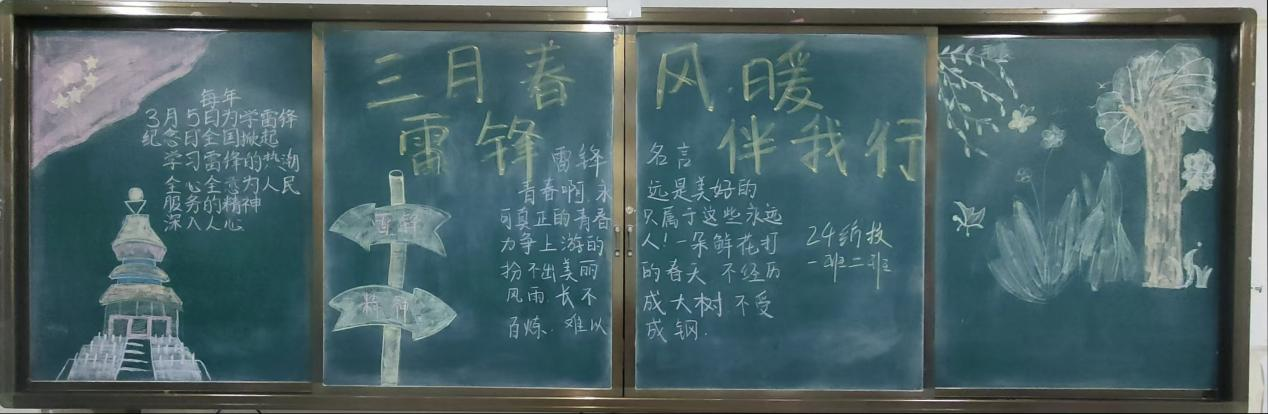 每年
3月5日为学雷锋
纪念日全国掀起
学习雷锋的热潮
全心全意为人民
服务的精神
深入人心
三月春风.暖
雷锋伴我行
雷锋
精神
雷锋名言
青春啊,永远是美好的
可真正的青春只属于这些永远
力争上游的人!一朵鲜花打
扮不出美丽的春天 不经历
风雨 长不成大树 不受
百炼.难以成钢.
24纺技
一班二班